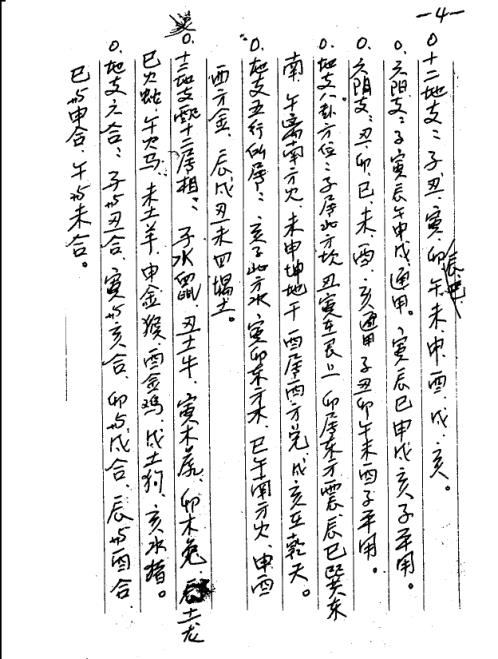 -4-
○十二地支：子、丑、寅、卯、辰、巳、午、未、申、酉、戌、亥。
○六阳支：子寅辰午申戌通用。寅辰巳申戌亥子平用。
○六阴支：丑、卯、巳、未、酉、亥通用子丑卯午未酉子平用。
○地支八卦方位：子居北方坎 丑寅在艮上 卯居东方震 辰巳巽东
南、午离南方火、未申坤地干 酉居西方兑、戌亥在乾天。
○地支五行所属：亥子北方水、寅卯东方木、巳午南方火、申酉
西方金、辰戌丑未四塌土。
○十二地支配十二属相：子水鼠、丑土牛、寅木虎、卯木兔 辰土龙
巳火蛇、午火马、未土羊、申金猴、酉金鸡、戌土狗、亥水猪。
○地支六合：子与丑合、寅与亥合、卯与戌合、辰与酉合
巳与申合、午与未合。